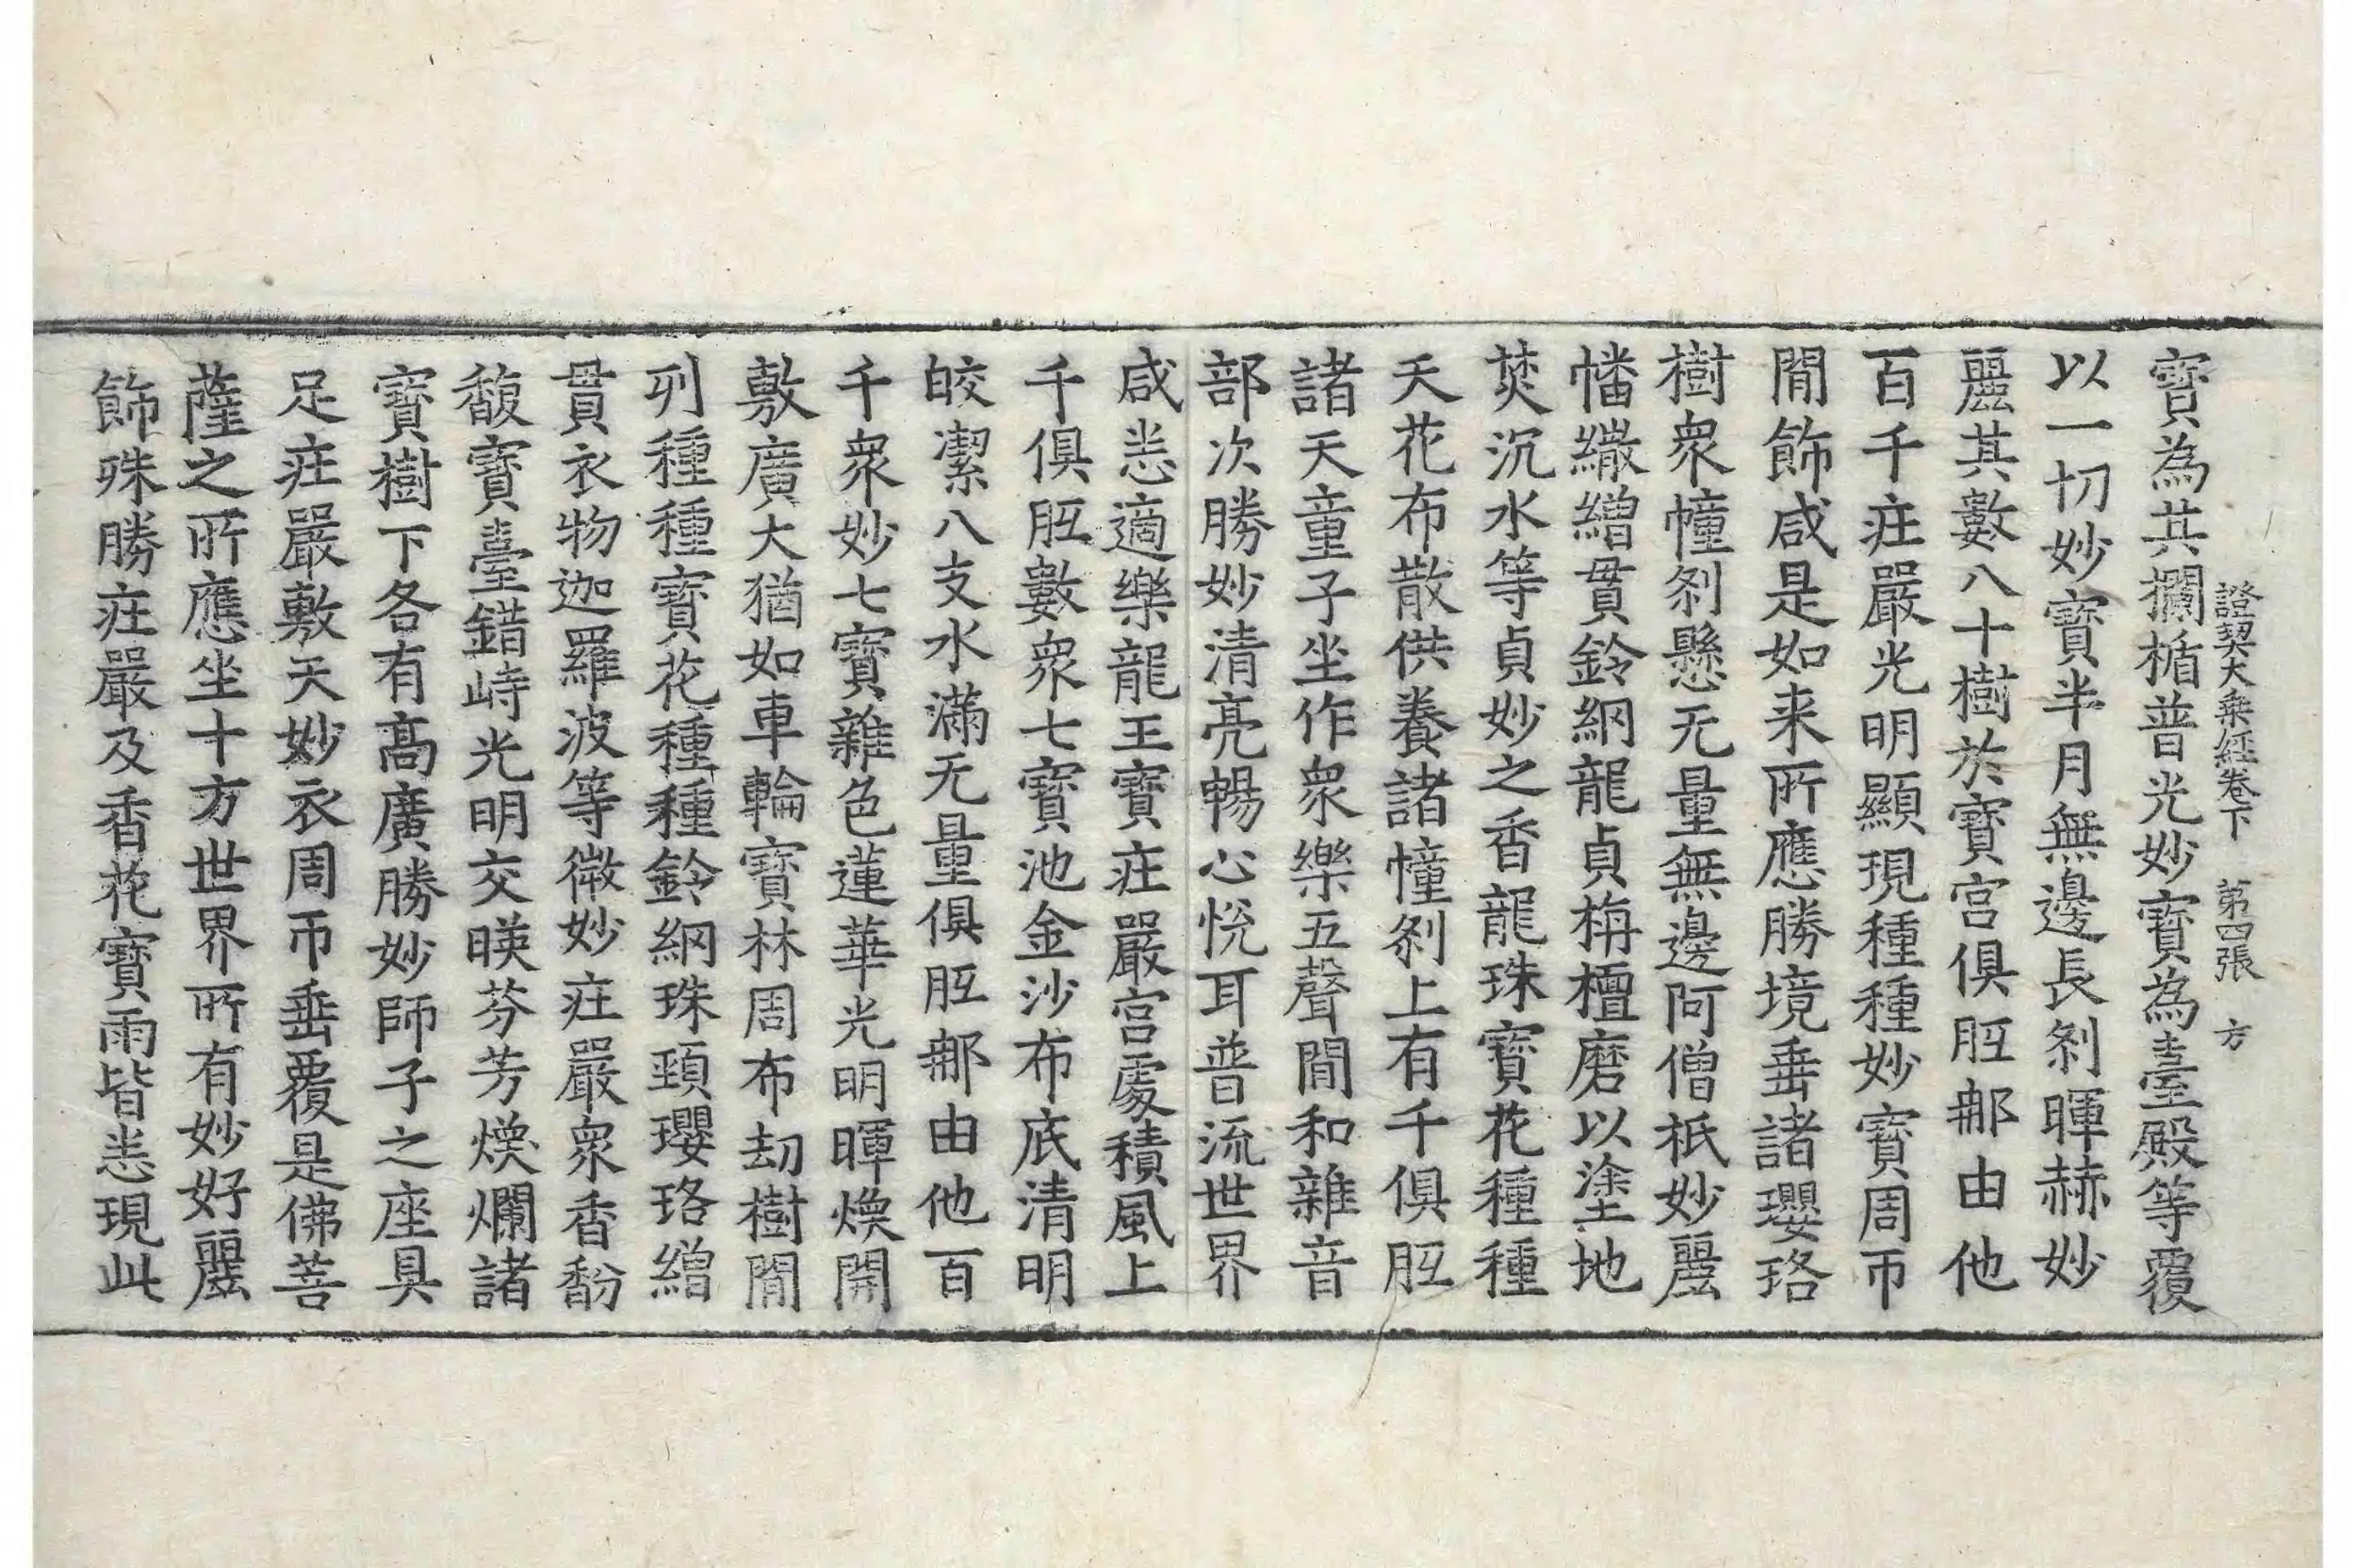 證契大乘經卷下 第四張 方
寶為其攔楯普光妙寶為臺殿等覆
以一切妙寶半月無邊長刹暉赫妙
麗其數八十樹於寶宮俱胝那由他
百千莊嚴光明顯現種種妙寶周帀
閒飾咸是如来所應勝境垂諸瓔珞
樹衆幢刹懸无量無邊阿僧祇妙麗
幡繖繒貫鈴網龍貞栴檀磨以塗地
焚沉水等貞妙之香龍珠寶花種種
天花布散供養諸幢刹上有千俱胝
諸天童子坐作衆樂五聲閒和雜音
部次勝妙清亮暢心悅耳普流世界
咸悉適樂龍王寶莊嚴宮處積風上
千俱胝數衆七寶池金沙布底清明
皎潔八支水滿无量俱胝那由他百
千衆妙七寶雜色蓮華光明暉煥開
敷廣大猶如車輪寶林周布劫樹閒
列種種寶花種種鈴網珠頸瓔珞繒
貫衣物迦羅波等微妙莊嚴衆香馚
馥寶臺錯峙光明交暎芬芳煥爛諸
寶樹下各有髙廣勝妙師子之座具
足莊嚴敷天妙衣周帀垂覆是佛菩
薩之所應坐十方世界所有妙好麗
飾殊勝莊嚴及香花寶雨皆悉現此